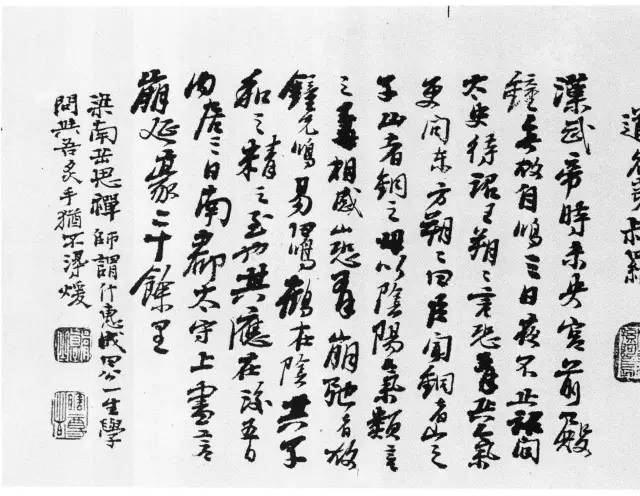 漢武帝時未央宮前殿
鐘無故自鳴三日夜不止詔問
太史待詔王朔〻言恐有兵氣
更問東方朔〻曰臣聞銅者山之
子山者銅之母以陰陽氣類言
之相感山恐有崩弛者故
鐘先鳴易曰鳴鶴在陰其子
和之精之至也其應在後五日
內居三日南郡太守上書言
崩延袤二十餘里
梁南岳思禪師謂什惠成曰公一生學
問與吾炙手猶不得煖